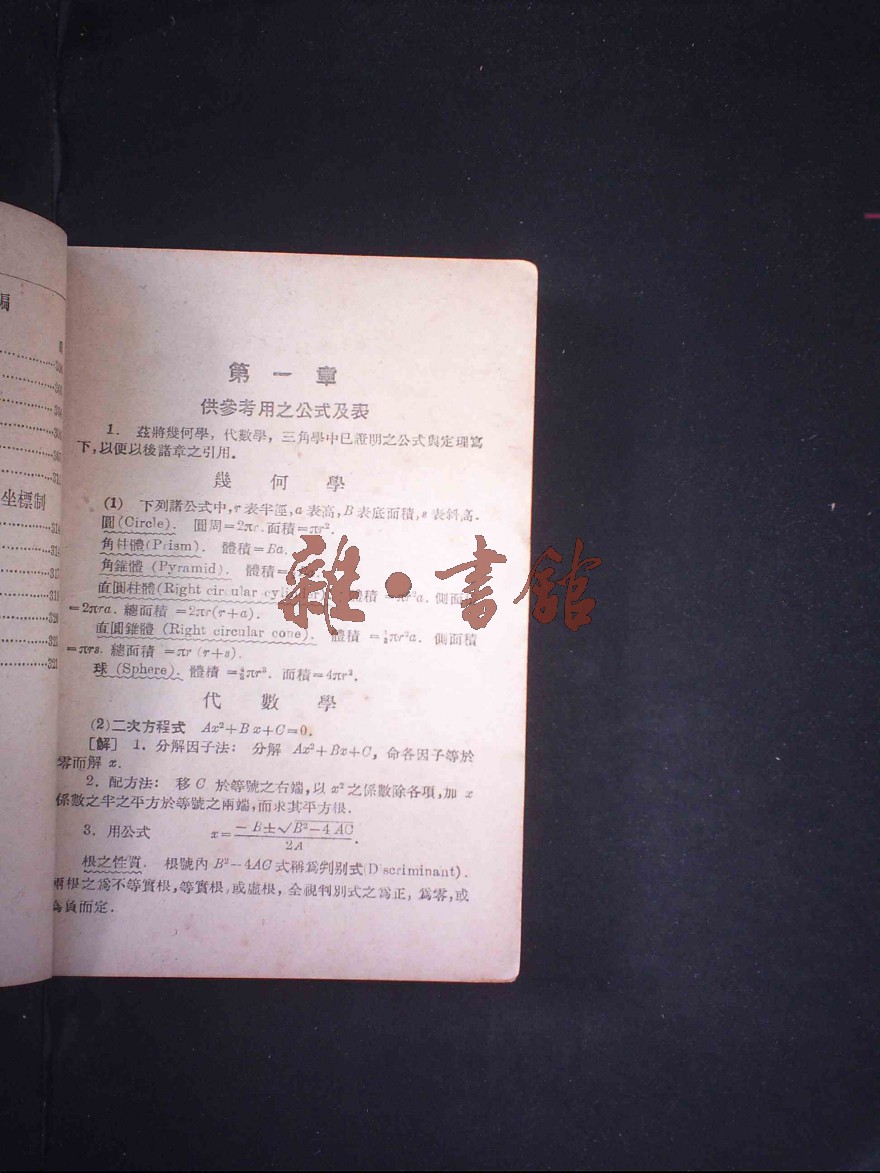 編
頁
坐標制
314
317
318
320
321
321
第一章
供參考用之公式及表
1. 茲將幾何學, 代數學, 三角學中已證明之公式與定理寫
下,以便以後諸章之引用.
幾何學
(1) 下列諸公式中,r表半徑,a表高,B表底面積,s表斜高.
圓(Circle). 圓周=2πr.面積=πr².
角柱體(Prism). 體積=Ba.
角錐體 (Pyramid). 體積=
直圓柱體(Right circular cylinder). 體積=πr²a. 側面
=2πra. 總面積=2πr(r+a).
直圓錐體 (Right circular cone). 體積=⅓πr²a. 側面積
=πrs. 總面積=πr (r+s).
球 (Sphere). 體積=4/3πr³. 面積=4πr².
代數學
(2)二次方程式 Ax²+Bx+C=0.
[解] 1. 分解因子法: 分解 Ax²+Bx+C, 命各因子等於
零而解 x.
2. 配方法: 移 C 於等號之右端,以 x² 之係數除各項,加 x
係數之半之平方於等號之兩端,而求其平方根.
3. 用公式 x=(-B±√B²-4AC)/2A.
根之性質. 根號內 B²-4AC 式稱爲判別式(Discriminant).
兩根之爲不等實根,等實根,或虛根, 全視判別式之爲正, 爲零,或
爲負而定.
雜·書館